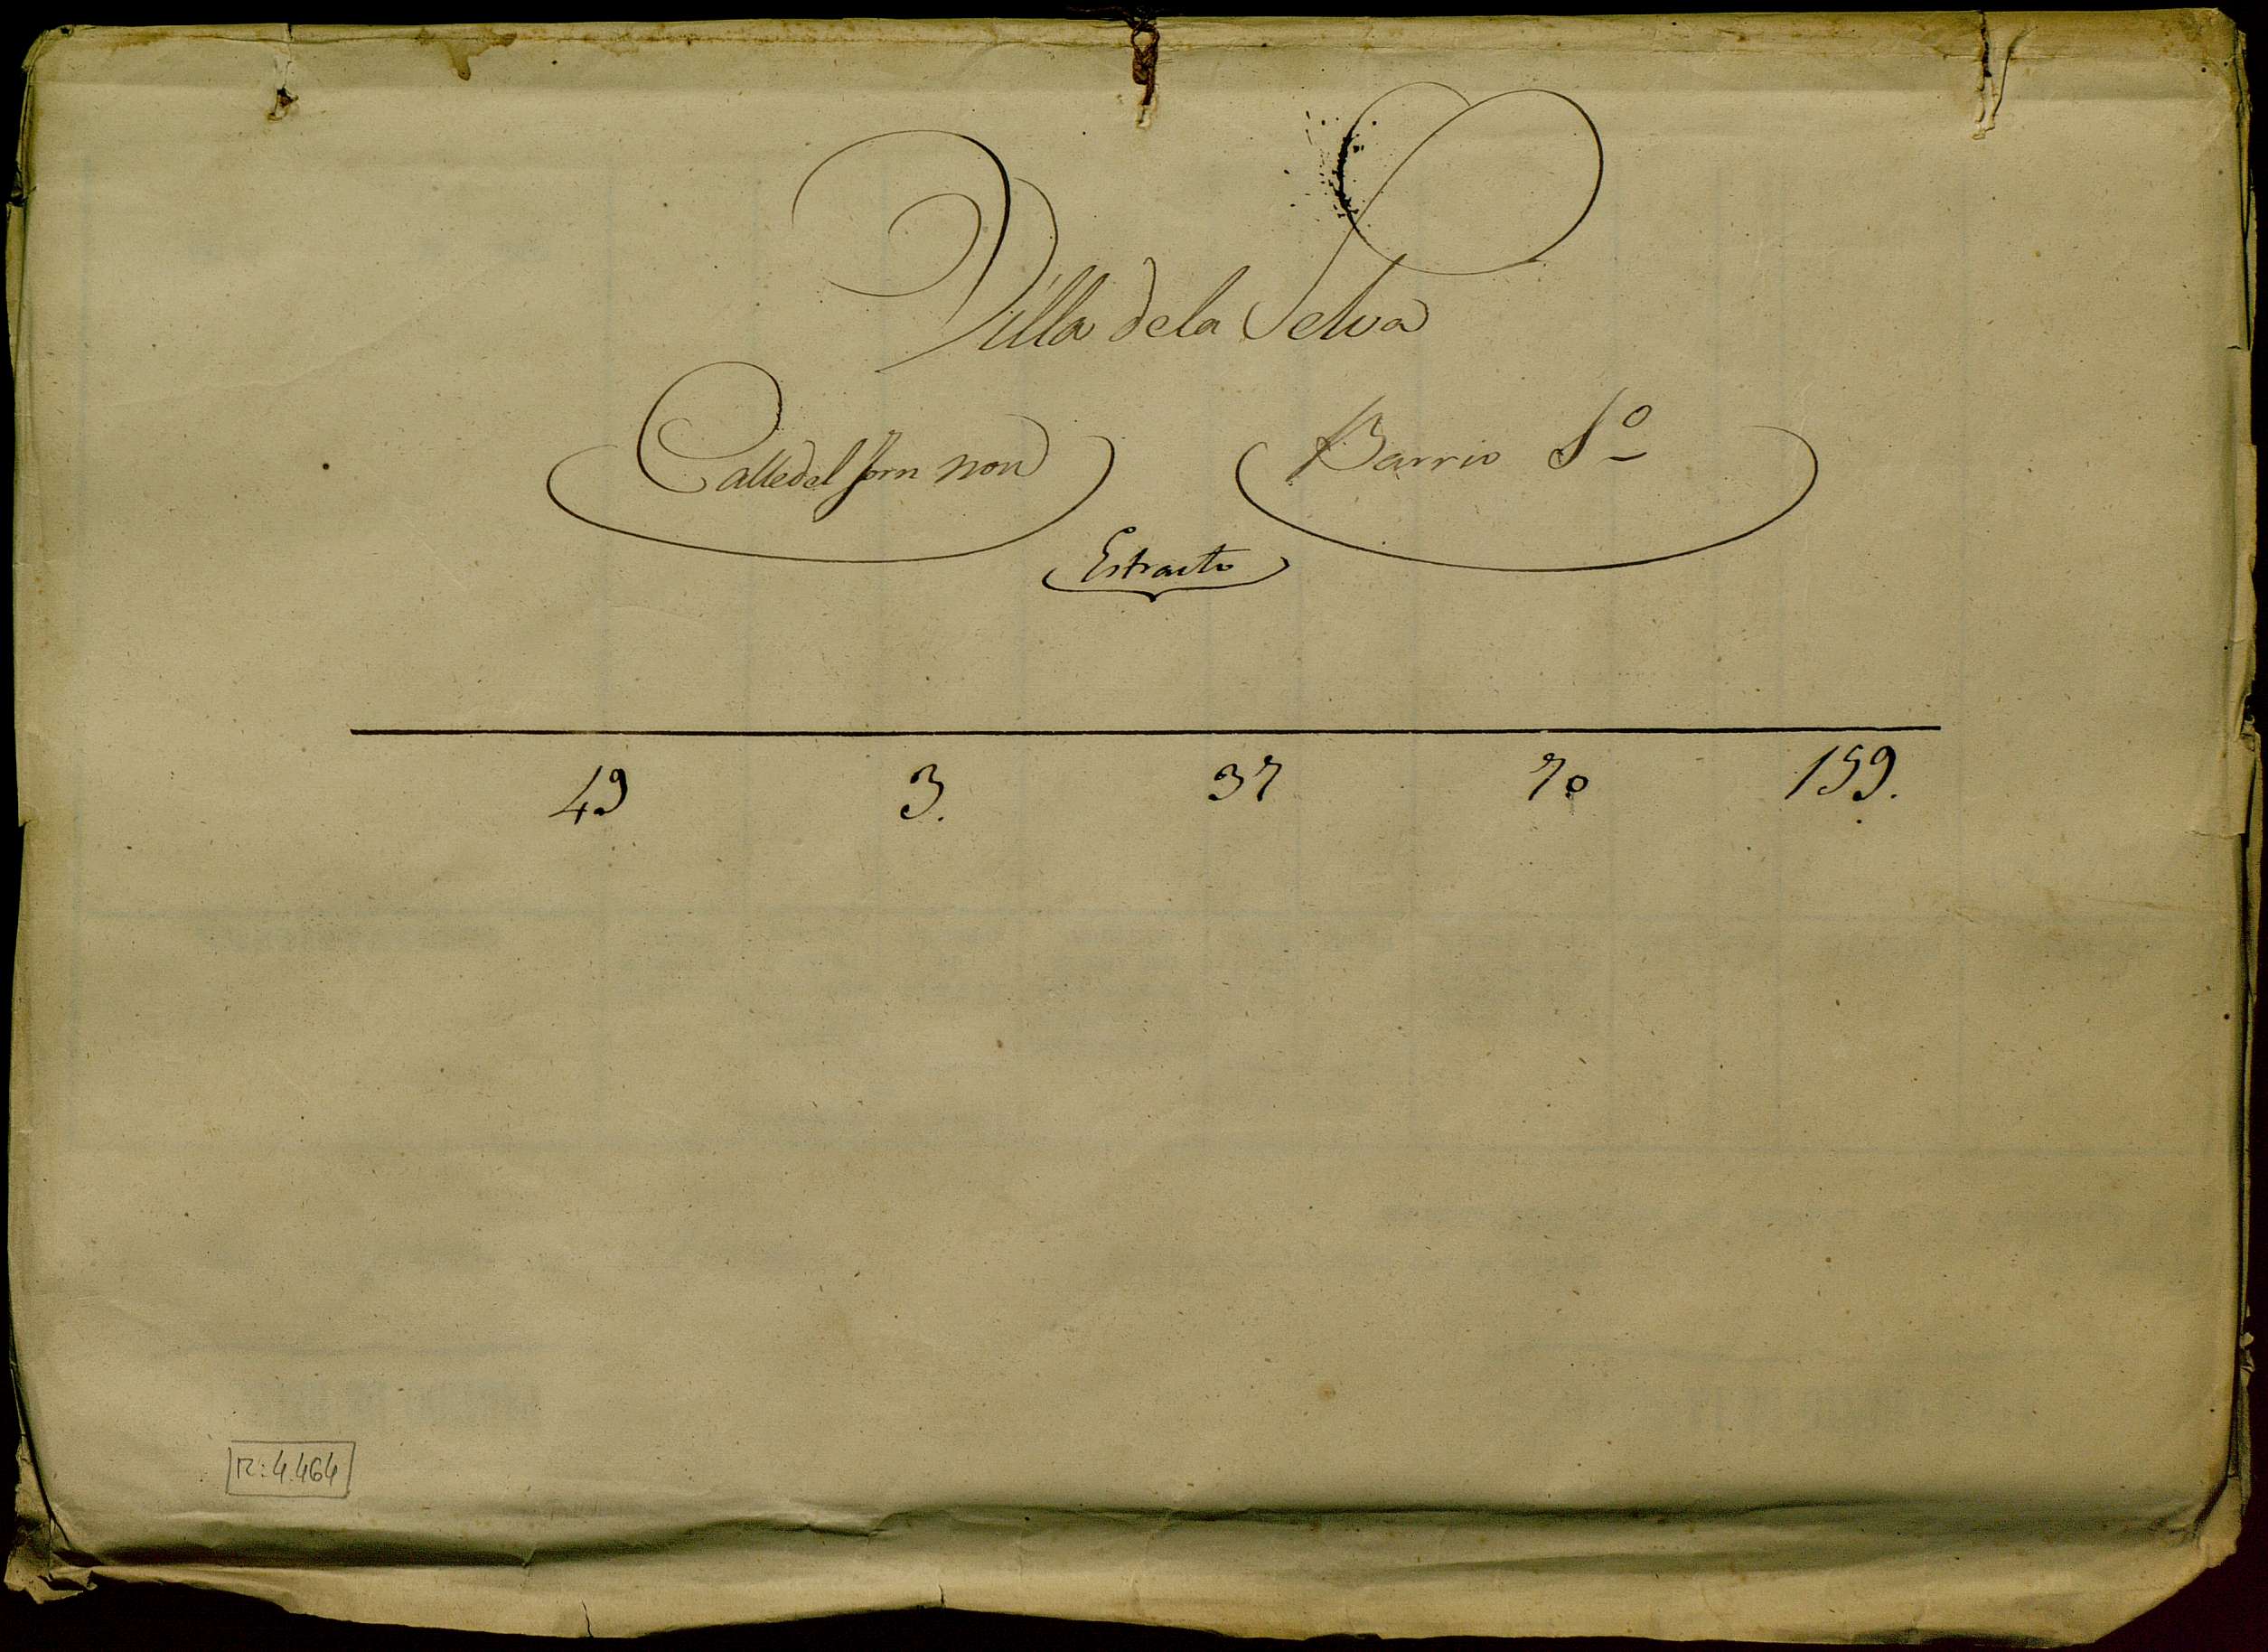 Villa de la Selva
Calle del forn nou Barrio 1º
Estracto
49 3. 37 70 159.
R: 4.464